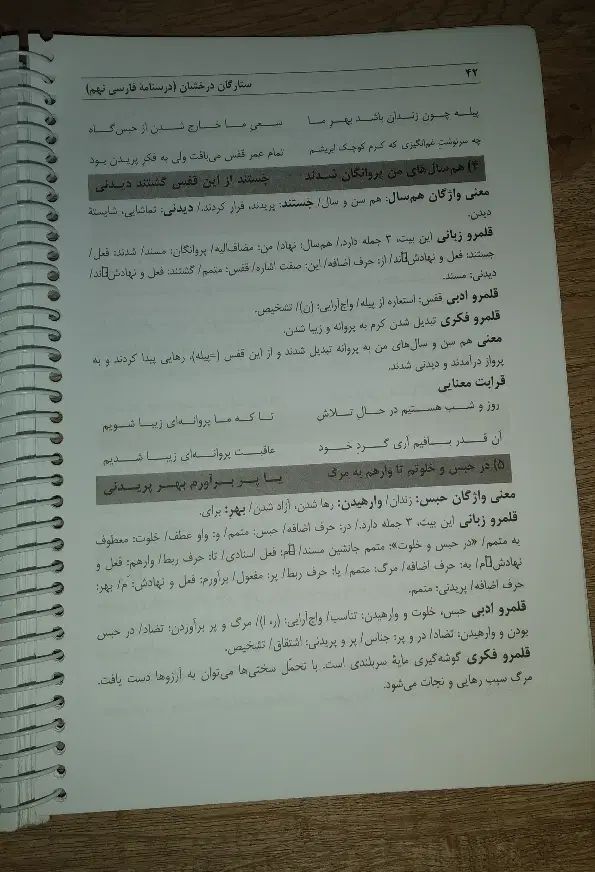 ۴۲
ستارگان درخشان (درسنامهٔ فارسی نهم)
پیلـه چـون زنـدان باشـد بهـر مـا سـعی مـا خـارج شـدن از حبس‌گـاه
چه سرنوشت غم‌انگیزی که کرم کوچک ابریشم تمام عمر قفس می‌بافت ولی به فکر پریدن بود
۴) هم‌سال‌های من پروانگان شـدند جَستند از این قفس گشتند دیـدنی
معنی واژگان هم‌سال: هم سن و سال/ جَستند: پریدند، فرار کردند./ دیدنی: تماشایی، شایستهٔ
دیدن.
قلمرو زبانی این بیت، ۳ جمله دارد./ هم‌سال: نهاد/ من: مضاف‌الیه/ پروانگان: مسند/ شدند: فعل/
جستند: فعل و نهادش□ند/ از: حرف اضافه/ این: صفت اشاره/ قفس: متمم/ گشتند: فعل و نهادش□ند/
دیدنی: مسند.
قلمرو ادبی قفس: استعاره از پیله/ واج‌آرایی: (ن)/ تشخیص.
قلمرو فکری تبدیل شدن کرم به پروانه و زیبا شدن.
معنی هم سن و سال‌های من به پروانه تبدیل شدند و از این قفس (=پیله)، رهایی پیدا کردند و به
پرواز درآمدند و دیدنی شدند.
قرابت معنایی
روز و شـب هسـتیم در حـالِ تـلاش تـا کـه مـا پروانـه‌ای زیبـا شـویم
آن قـدر بـافیم آری گـردِ خـود عاقبـت پروانـه‌ای زیبـا شـدیم
۵) در حبس و خلوتم تا وارهم به مرگ یـا پـر بـرآورم بهـر پریـدنی
معنی واژگان حبس: زندان/ وارهیدن: رها شدن، آزاد شدن/ بهر: برای.
قلمرو زبانی این بیت، ۳ جمله دارد./ در: حرف اضافه/ حبس: متمم/ و: واو عطف/ خلوت: معطوف
به متمم/ «در حبس و خلوت»: متمم جانشین مسند/ □م: فعل اسنادی/ تا: حرف ربط/ وارهم: فعل و
نهادش□م/ به: حرف اضافه/ مرگ: متمم/ یا: حرف ربط/ پر: مفعول/ برآورم: فعل و نهادش: َم/ بهر:
حرف اضافه/ پریدنی: متمم.
قلمرو ادبی حبس، خلوت و وارهیدن: تناسب/ واج‌آرایی: (ر، ا)/ مرگ و پر برآوردن: تضاد/ در حبس
بودن و وارهیدن: تضاد/ در و پر: جناس/ پر و پریدنی: اشتقاق/ تشخیص.
قلمرو فکری گوشه‌گیری مایهٔ سربلندی است. با تحمّل سختی‌ها می‌توان به آرزوها دست یافت.
مرگ سبب رهایی و نجات می‌شود.